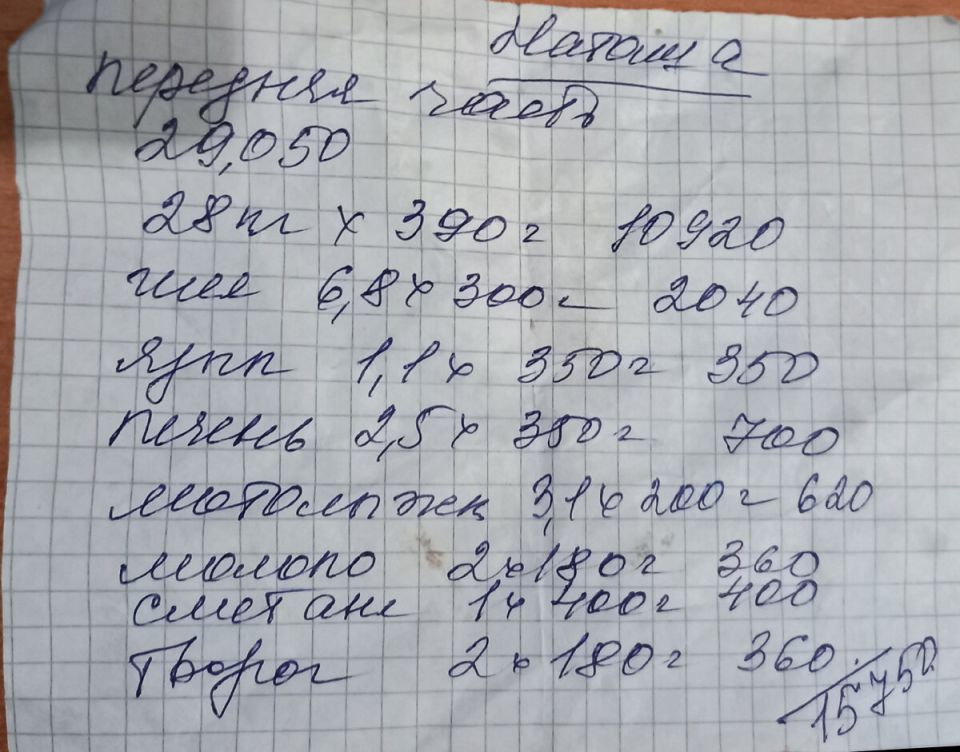 Наташа
передняя часть
29,050
28кг х 390= 10920
шея 6,8х 300= 2040
язык 1,1х 350= 350
печень 2,5х 350= 700
мотолыжк 3,1х200= 620
молоко 2х180= 360
сметана 1х 400= 400
Творог 2х180= 360.
15750.